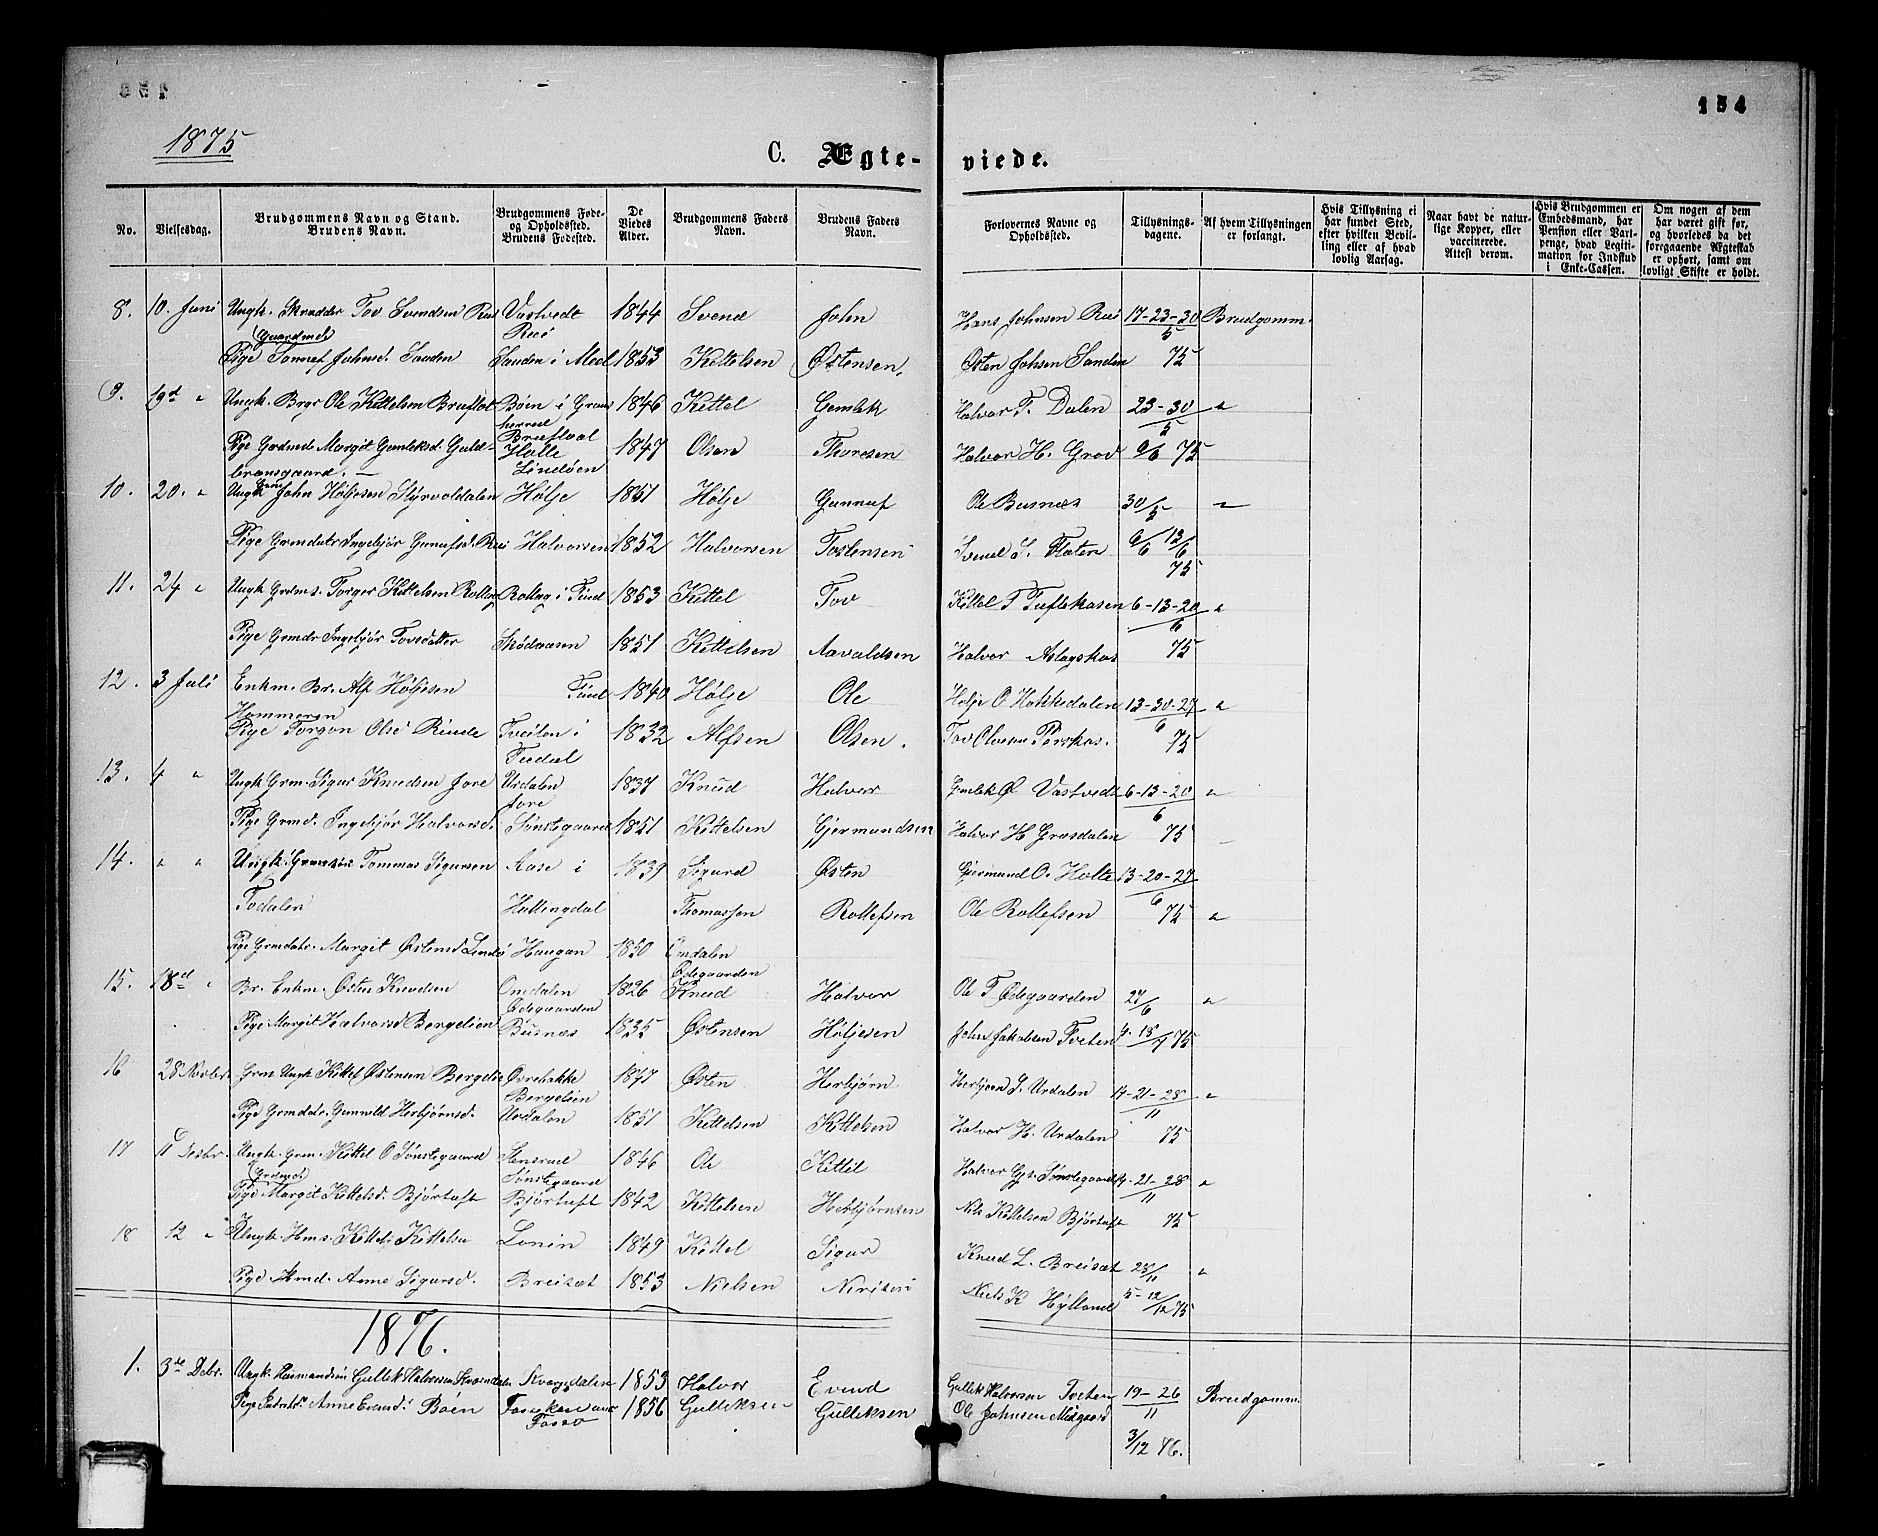 154
1875
C. Ægte-viede.
No.
Vielsesdag.
Brudgommens Navn og Stand.
Brudens Navn.
Brudgommens Føde-
og Opholdssted.
Brudens Fødested.
De
Viedes
Alder.
Brudgommens Faders
Navn.
Brudens Faders
Navn.
Forlovernes Navne og
Opholdssted.
Tillysnings-
dagene.
Af hvem Tillysningen
er forlangt.
Hvis Tillysning ei
har fundet Sted,
efter hvilken Bevil-
ling eller af hvad
lovlig Aarsag.
Naar havt de natur-
lige Kopper, eller
vaccinerede.
Attest derom.
Hvis Brudgommen er
Embedsmand, har
Pension eller Vart-
penge, hvad Legiti-
mation for Indskud
i Enke-Cassen.
Om nogen af dem
har været gift før,
og hvorledes da det
foregaaende Ægteskab
er ophørt, samt om
lovligt Skifte er holdt.
8. 10. Juni Ungk. Skrædder Tov Svendsen Rui Vastvedt 1844 Svend John Hans Johnsen Rui 17-23-30 Brudgomm.
Gaardmd Rui 5
Pige Johnsd. Sanden Sanden i Mæl 1853 Kittelsen Østensen. Østen Johsen Sanden 75
9. 19d " Ungk. Brgr Ole Kittelsen Bøen i Grans 1846 Kittel Gemlek Halvor T. Dalen 23-30 "
herred 5
Pige Margit Gemleksd. Guld- 1847 Olsen Thoresen Halvor H. Grov 6/6 75
bransgaard. —
10. 20. " Ungk John Høljesen Styrvoldalen Hølje 1851 Hølje Gunnuf Ole Busnæs 30/5 "
Pige Grmdatr Ingebjør Gunufsd. Rui Halvorsen 1852 Halvorsen Tostensen Svend S. Flaten 6/6 13/6
75
11. 24 " Ungk Grdms. Torger Kittelsen Rollag Rollag i Tind 1853 Kittel Tov Kittel T Tuftekaasen 6-13-20 "
6
Pige Grmdr Ingebjør Tovsdatter 1851 Kittelsen Aavaldsen Halvor Aslagskaas 75
12. 3 Juli Enkm. Br. Alf Høljesen Tind 1840 Hølje Ole Hølje O Hakkedalen 13-20-27 "
Hammeren 6
Pige Torgon Olsd Rinde Tveiten i 1832 Alfsen Olsen. Tov Olversen 75
Tudal
13. 4 " Ungk Grm. Sigur Knudsen Jore Urdalen 1837 Knud Halvor Gemlek Ø Vastvedt 6-13-20 "
Jore 6
Pige Grmd. Ingebjør Halvorsd. Sønstegaard 1851 Kittelsen Gjermundsen Halvor H Grasdalen 75
14. " " Ungk. Grmsøn Tommas Sigursen Aase i 1839 Sigurd Østen Gjermund O. Holte 13-20-27
6
Todalen Hallingdal Thomassen Rollefsen Ole Rollefsen 75 "
Pige Grmdatr. Margit Østensd. Haugan 1850 Omdalen
Ødegaarden
15. 18d " Br. Enkm. Østen Knudsen Omdalen 1826 Knud Halvor Ole T Ødegaarden 27/6 "
Ødegaarden
Pige Margit Halvorsd Bergelien Busnæs 1835 Østensen Høljesen John Jakobsen Tveten 4-18/7 75
16 28 Novbr. Grm Ungk Kittel Østensen Bergelie Øvrebakke 1847 Østen Herbjørn Herbjørn G. Urdalen 14-21-28 "
Bergelien 11
Pige Grmdtr. Gunvild Herbjørnsd. Urdalen 1851 Kittelsen Kittelsen Halvor H. Urdalen 75
17 11 Decbr. Ungk. Grm. Kittel O Sønstegaard Stensrud 1846 Ole Kittil Halvor Gjs. Sønstegaard 14-21-28 "
Sønstegaard 11
Pige Margit Kittelsd. Bjørtuft Bjørtuft 1842 Kittelsen Herbjørnsen Nils Kittelsen Bjørtuft 75
18 12 " Ungk. Hms. Kittel Kittelsen Lonin 1849 Kittel Sigur Knud L. Breisæt 28/11 "
Pige Hmd. Anne Sigursd. Breisæt 1853 Nielsen Niels K Hylland 5-12/12 75
1876.
1. 3de Dcbr. Ungk. Husmandsøn Gullik Halvorsen 1853 Halvor Evind Gullik Halvorsen Tveten 19-26 Brudgomm.
Pige Anne Evindsd. Bøen 1856 Gulliksen Gulliksen Ole Johnsen Midgaard 11
3/12 76.